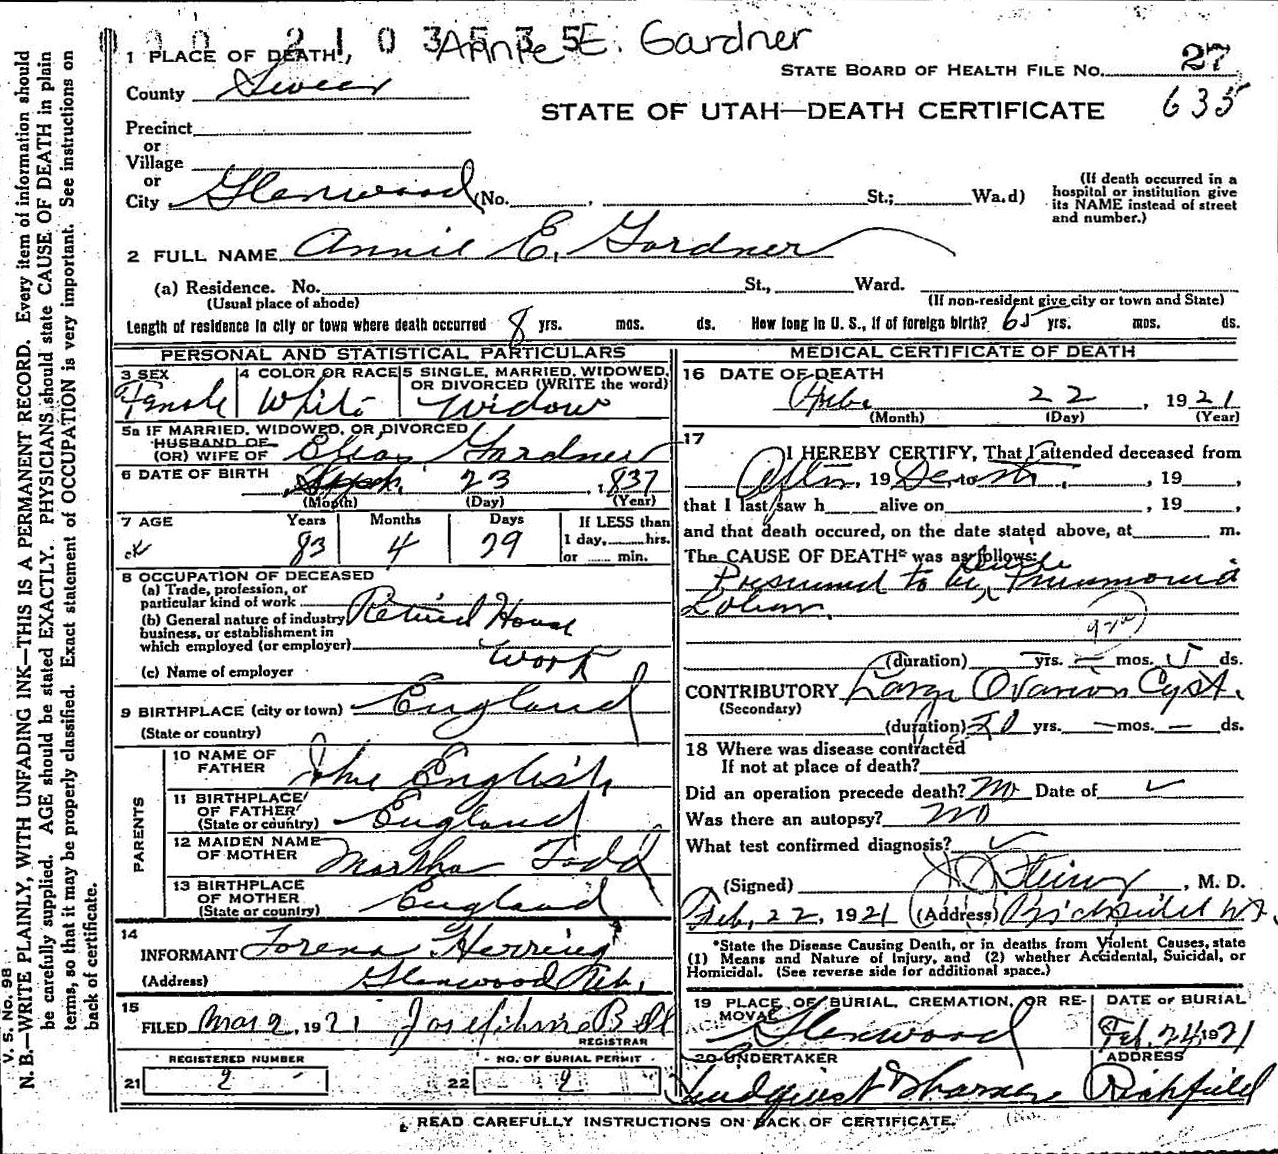 Annie E. Gardner
1 PLACE OF DEATH,
STATE BOARD OF HEALTH FILE No. 27
County Sevier
STATE OF UTAH—DEATH CERTIFICATE 635
Precinct
or
Village
or
City Glenwood (No. , St.; Wa.d)
(If death occurred in a hospital or institution give its NAME instead of street and number.)
2 FULL NAME Annie E. Gardner
(a) Residence. No. St., Ward.
(Usual place of abode) (If non-resident give city or town and State)
Length of residence in city or town where death occurred 8 yrs. mos. ds. How long in U. S., if of foreign birth? 65 yrs. mos. ds.
PERSONAL AND STATISTICAL PARTICULARS
3 SEX Female
4 COLOR OR RACE White
5 SINGLE, MARRIED, WIDOWED, OR DIVORCED (WRITE the word) Widow
5a IF MARRIED, WIDOWED, OR DIVORCED
HUSBAND OF
(OR) WIFE OF Elias Gardner
6 DATE OF BIRTH 23 1837
(Month) (Day) (Year)
7 AGE Years Months Days If LESS than
83 4 29 1 day, hrs.
or min.
8 OCCUPATION OF DECEASED
(a) Trade, profession, or particular kind of work Retired House
(b) General nature of industry business, or establishment in which employed (or employer) Work
(c) Name of employer
9 BIRTHPLACE (city or town) England
(State or country)
PARENTS
10 NAME OF FATHER John English
11 BIRTHPLACE OF FATHER (State or country) England
12 MAIDEN NAME OF MOTHER Martha Todd
13 BIRTHPLACE OF MOTHER (State or country) England
14
INFORMANT Lorena Herring
(Address) Glenwood Utah
15
FILED Mar 2, 1921 Josephine Bell
REGISTRAR
REGISTERED NUMBER NO. OF BURIAL PERMIT
21 2 22 2
MEDICAL CERTIFICATE OF DEATH
16 DATE OF DEATH
Feb. 22, 1921
(Month) (Day) (Year)
17
I HEREBY CERTIFY, That I attended deceased from
After, 19 Death, 19 ,
that I last saw h alive on , 19 ,
and that death occured, on the date stated above, at m.
The CAUSE OF DEATH* was as follows:
Presumed to be Senile Pneumonia
Lobar.
(duration) — yrs. — mos. 5 ds.
CONTRIBUTORY Large Ovarian Cyst.
(Secondary)
(duration) 20 yrs. — mos. — ds.
18 Where was disease contracted
If not at place of death?
Did an operation precede death? No Date of
Was there an autopsy? No
What test confirmed diagnosis?
(Signed) , M. D.
Feb. 22, 1921 (Address) Richfield Ut.
*State the Disease Causing Death, or in deaths from Violent Causes, state
(1) Means and Nature of Injury, and (2) whether Accidental, Suicidal, or
Homicidal. (See reverse side for additional space.)
19 PLACE OF BURIAL, CREMATION, OR REMOVAL Glenwood
DATE OF BURIAL Feb. 24 1921
20 UNDERTAKER
ADDRESS Richfield
READ CAREFULLY INSTRUCTIONS ON BACK OF CERTIFICATE.
V. S. No. 98
N. B.—WRITE PLAINLY, WITH UNFADING INK—THIS IS A PERMANENT RECORD. Every item of information should
be carefully supplied. AGE should be stated EXACTLY. PHYSICIANS should state CAUSE OF DEATH in plain
terms, so that it may be properly classified. Exact statement of OCCUPATION is very important. See instructions on
back of certificate.